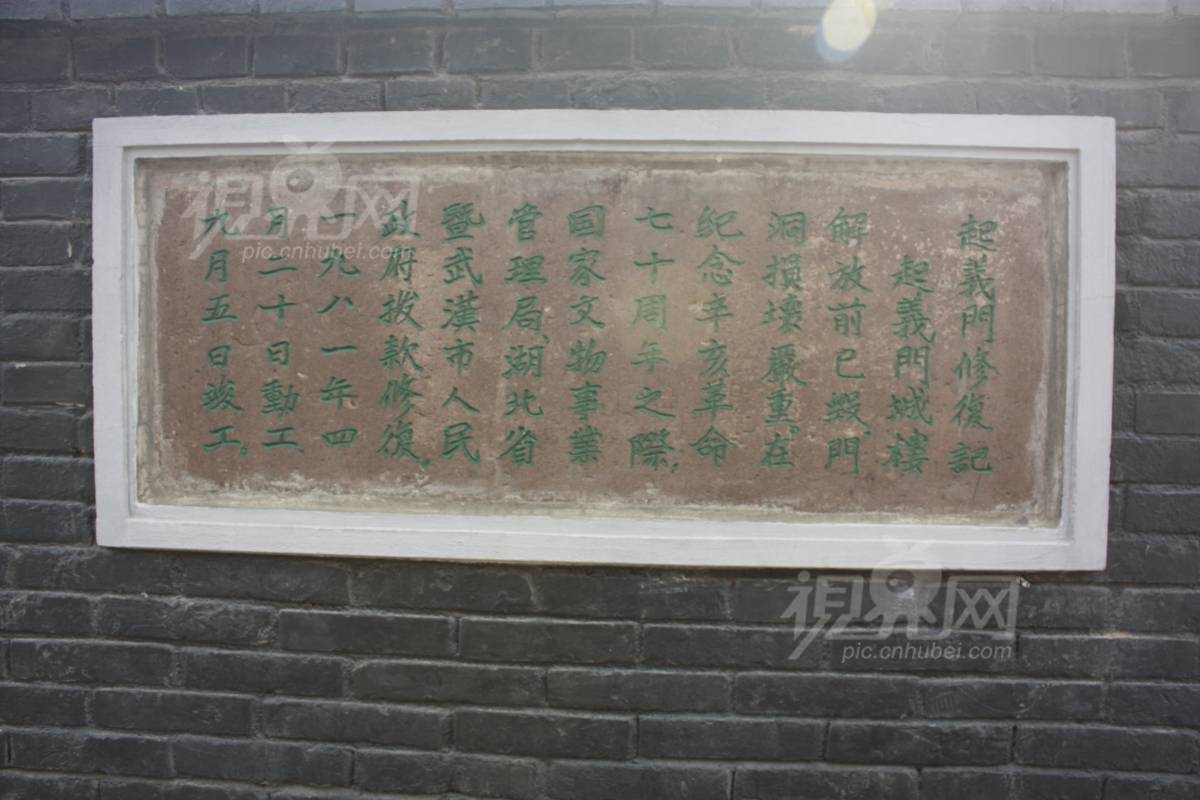 起義門修復記
起義門城樓
解放前已毀，門
洞損壞嚴重。在
紀念辛亥革命
七十周年之際，
國家文物事業
管理局、湖北省
暨武漢市人民
政府拔款修復，
一九八一年四
月二十日動工，
九月五日竣工。
视界网
pic.cnhubei.com
视界网
pic.cnhubei.com